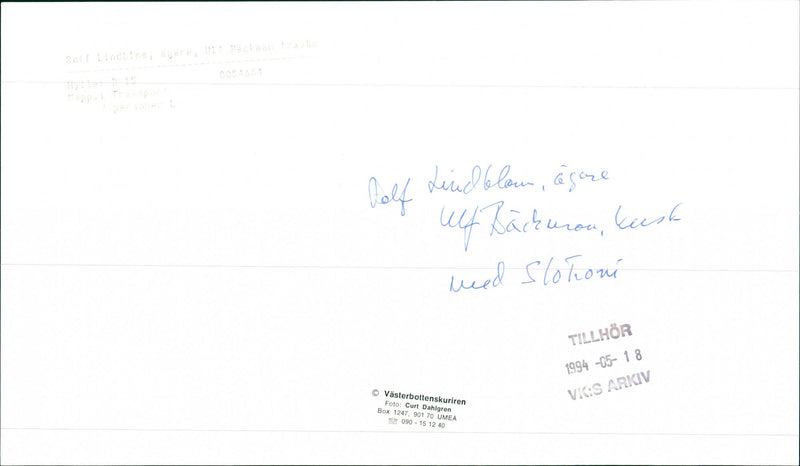 Rolf Lindblom, ägare, Ulf Bäckman
Hylla: D 15 0054664
Mapp: Transport
personer L
Rolf Lindblom, ägare
Ulf Bäckman, kusk
med Slotroni
TILLHÖR
1994 -05- 18
VK:S ARKIV
© Västerbottenskuriren
Foto: Curt Dahlgren
Box 1247, 901 70 UMEA
☏ 090 - 15 12 40